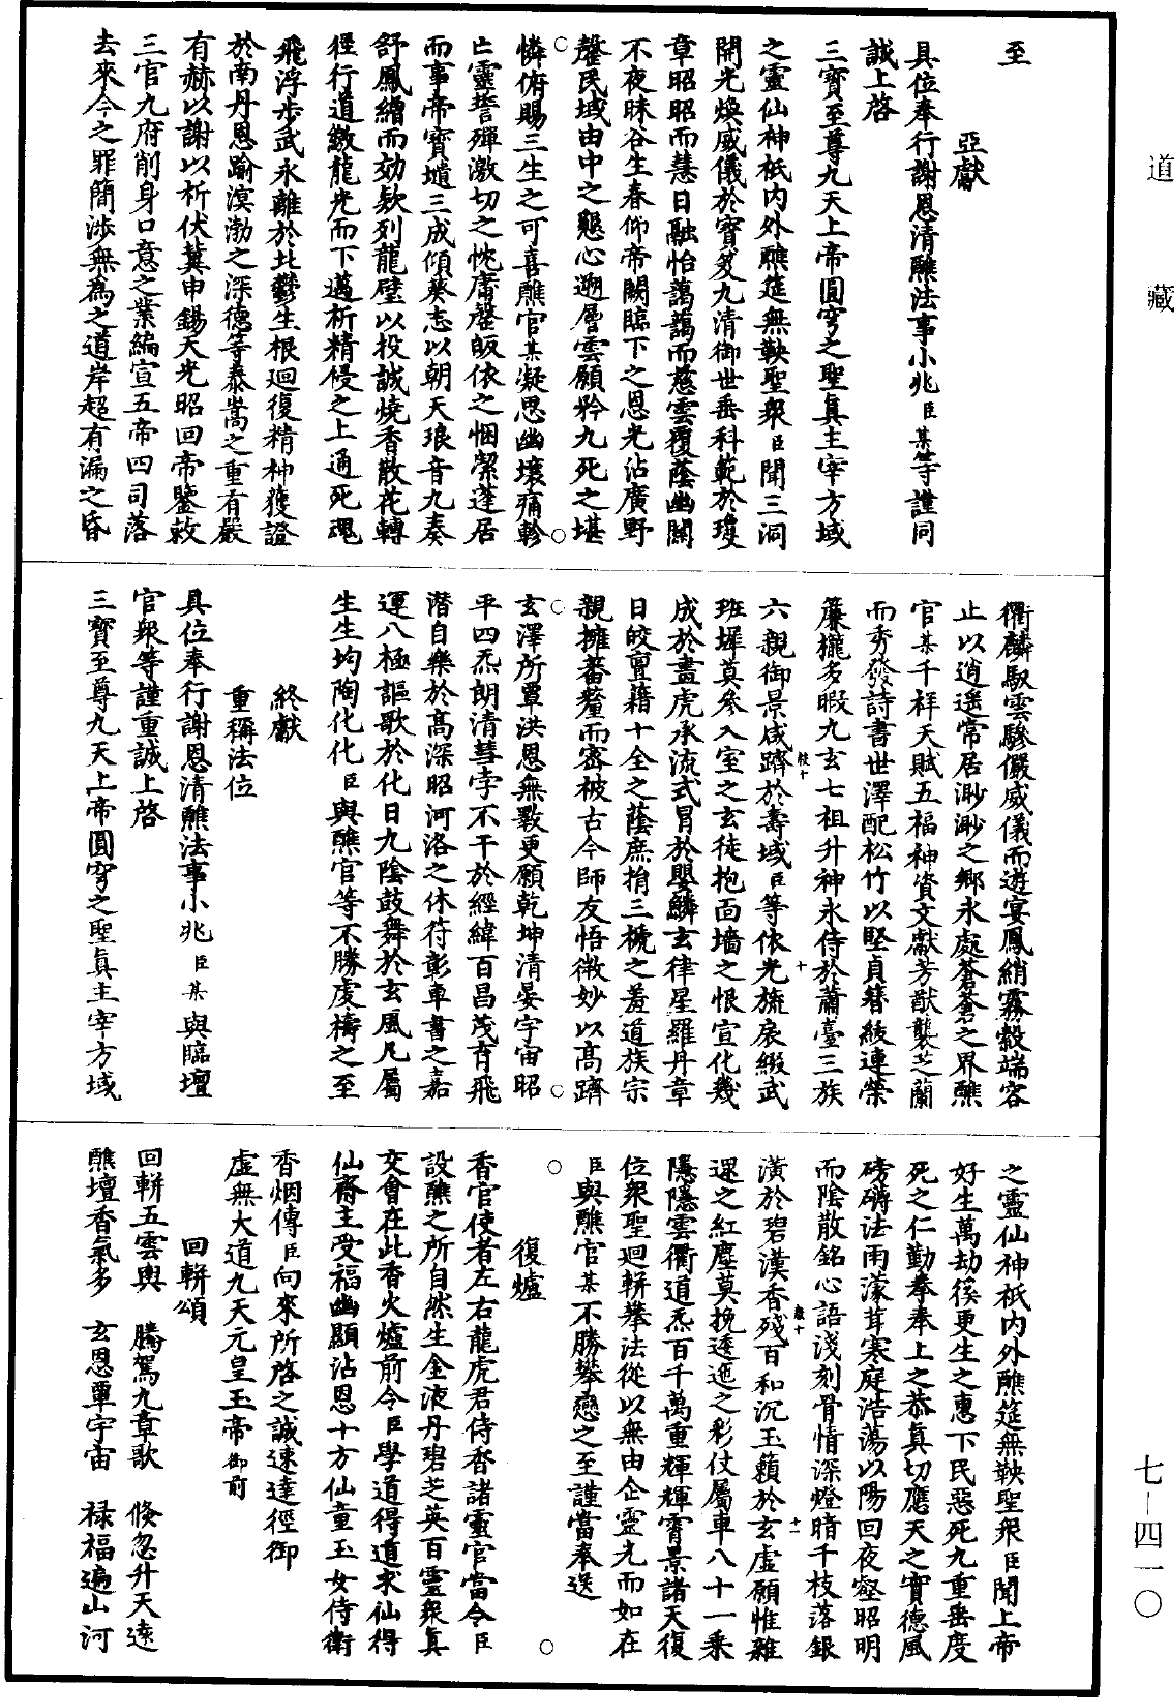 道藏
至
亞獻
具位奉行謝恩清醮法事小兆臣某等謹同
誠上啓
三寶至尊九天上帝圓穹之聖真主宰方域
之靈仙神祇內外醮筵無鞅聖衆臣聞三洞
開光煥威儀於寶笈九清御世垂科範於瓊
章昭昭而慧日融怡藹藹而慈雲覆蔭幽關
不夜昧谷生春仰帝闕臨下之恩光沾廣野
罄民域由中之懇心遡層雲願矜九死之堪
憐俯賜三生之可喜醮官某凝思幽壤痛軫
亡靈誓殫激切之忱庸罄皈依之悃潔蓬居
而事帝寶壇三成傾葵志以朝天琅音九奏
舒鳳繒而効欵列龍璧以投誠燒香散花轉
經行道緻龍光而下邁析精祲之上通死魂
飛浮步武永離於北酆生根迴復精神獲證
於南丹恩踰溟渤之深德等泰嵩之重有嚴
有赫以謝以祈伏冀申錫天光昭回帝鑒敕
三官九府削身口意之業編宣五帝四司落
去來今之罪簡涉無爲之道岸超有漏之昏
衢麟馭雲驂儼威儀而遊宴鳳綃霧縠端容
止以逍遙常居渺渺之鄉永處蒼蒼之界醮
官某千祥天賦五福神資文獻芳猷襲芝蘭
而秀發詩書世澤配松竹以堅貞簪綾連榮
簾櫳多暇九玄七祖升神永侍於蕭臺三族
六親御景咸躋於壽域臣等依光旒扆綴武
班墀莫參入室之玄徒抱面墻之恨宣化幾
成於畫虎承流式冒於嬰鱗玄律星羅丹章
日皎亶藉十全之蔭庶捐三𧝓之羞道族宗
親擁蕃釐而密被古今師友悟微妙以高躋
玄澤所覃洪恩無斁更願乾坤清晏宇宙昭
平四炁朗清彗孛不干於經緯百昌茂育飛
潛自樂於高深昭河洛之休符彰車書之嘉
運八極謳歌於化日九陰鼓舞於玄風凡屬
生生均陶化化臣與醮官等不勝虔禱之至
終獻
重稱法位
具位奉行謝恩清醮法事小兆臣某與臨壇
官衆等謹重誠上啓
三寶至尊九天上帝圓穹之聖真主宰方域
之靈仙神祇內外醮筵無鞅聖衆臣聞上帝
好生萬劫徯更生之惠下民惡死九重垂度
死之仁勤拳奉上之恭真切應天之實德風
磅礴法雨濛茸寒庭浩蕩以陽回夜壑昭明
而陰散銘心語淺刻骨情深燈暗千枝落銀
潢於碧漢香殘百和沉玉籟於玄虛願惟雜
遝之紅塵莫挽逶迤之彩仗屬車八十一乘
隱隱雲衢道炁百千萬重輝輝霄景諸天復
位衆聖迴輧攀法從以無由企靈光而如在
臣與醮官某不勝攀戀之至謹當奉送
復爐
香官使者左右龍虎君侍香諸靈官當令臣
設醮之所自然生金液丹碧芝英百靈衆真
交會在此香火爐前令臣學道得道求仙得
仙齋主受福幽顯沾恩十方仙童玉女侍衛
香烟傳臣向來所啓之誠速達徑御
虛無大道九天元皇玉帝御前
回輧頌
回輧五雲輿　騰駕九章歌　倏忽升天遠
醮壇香氣多　玄恩覃宇宙　祿福遍山河
七—四一〇